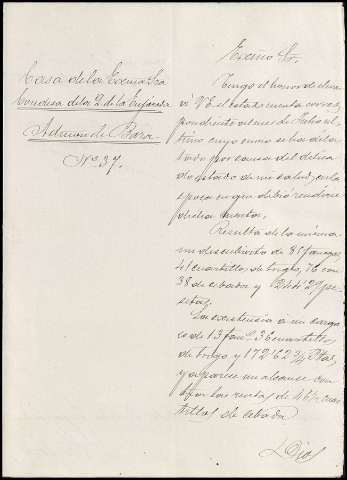 Casa de la Excma. Sra.
Condesa de la V. de la Enjarada
Admon. de Baza
Nº 37.
Excmo. Sr.
Tengo el honor de elevar
á V.E. el estado cuenta corres-
pondiente al mes de Julio úl-
timo cuyo envio se ha dila-
tado por causa del delica-
do estado de mi salud, en la
época en que debió rendirse
dicha cuenta.
Resulta de la misma
un descubierto de 81 fanegas,
41 cuartillos de trigo, 76 con
38 de cebada y 244'29 pe-
setas.
La existencia á mi cargo
es de 13 fans. 36 cuartillos
de trigo y 172'62 ¾ Ptas,
y aparece un alcance con-
tra las rentas de 46 ½ cuar-
tillos de cebada.
Dios